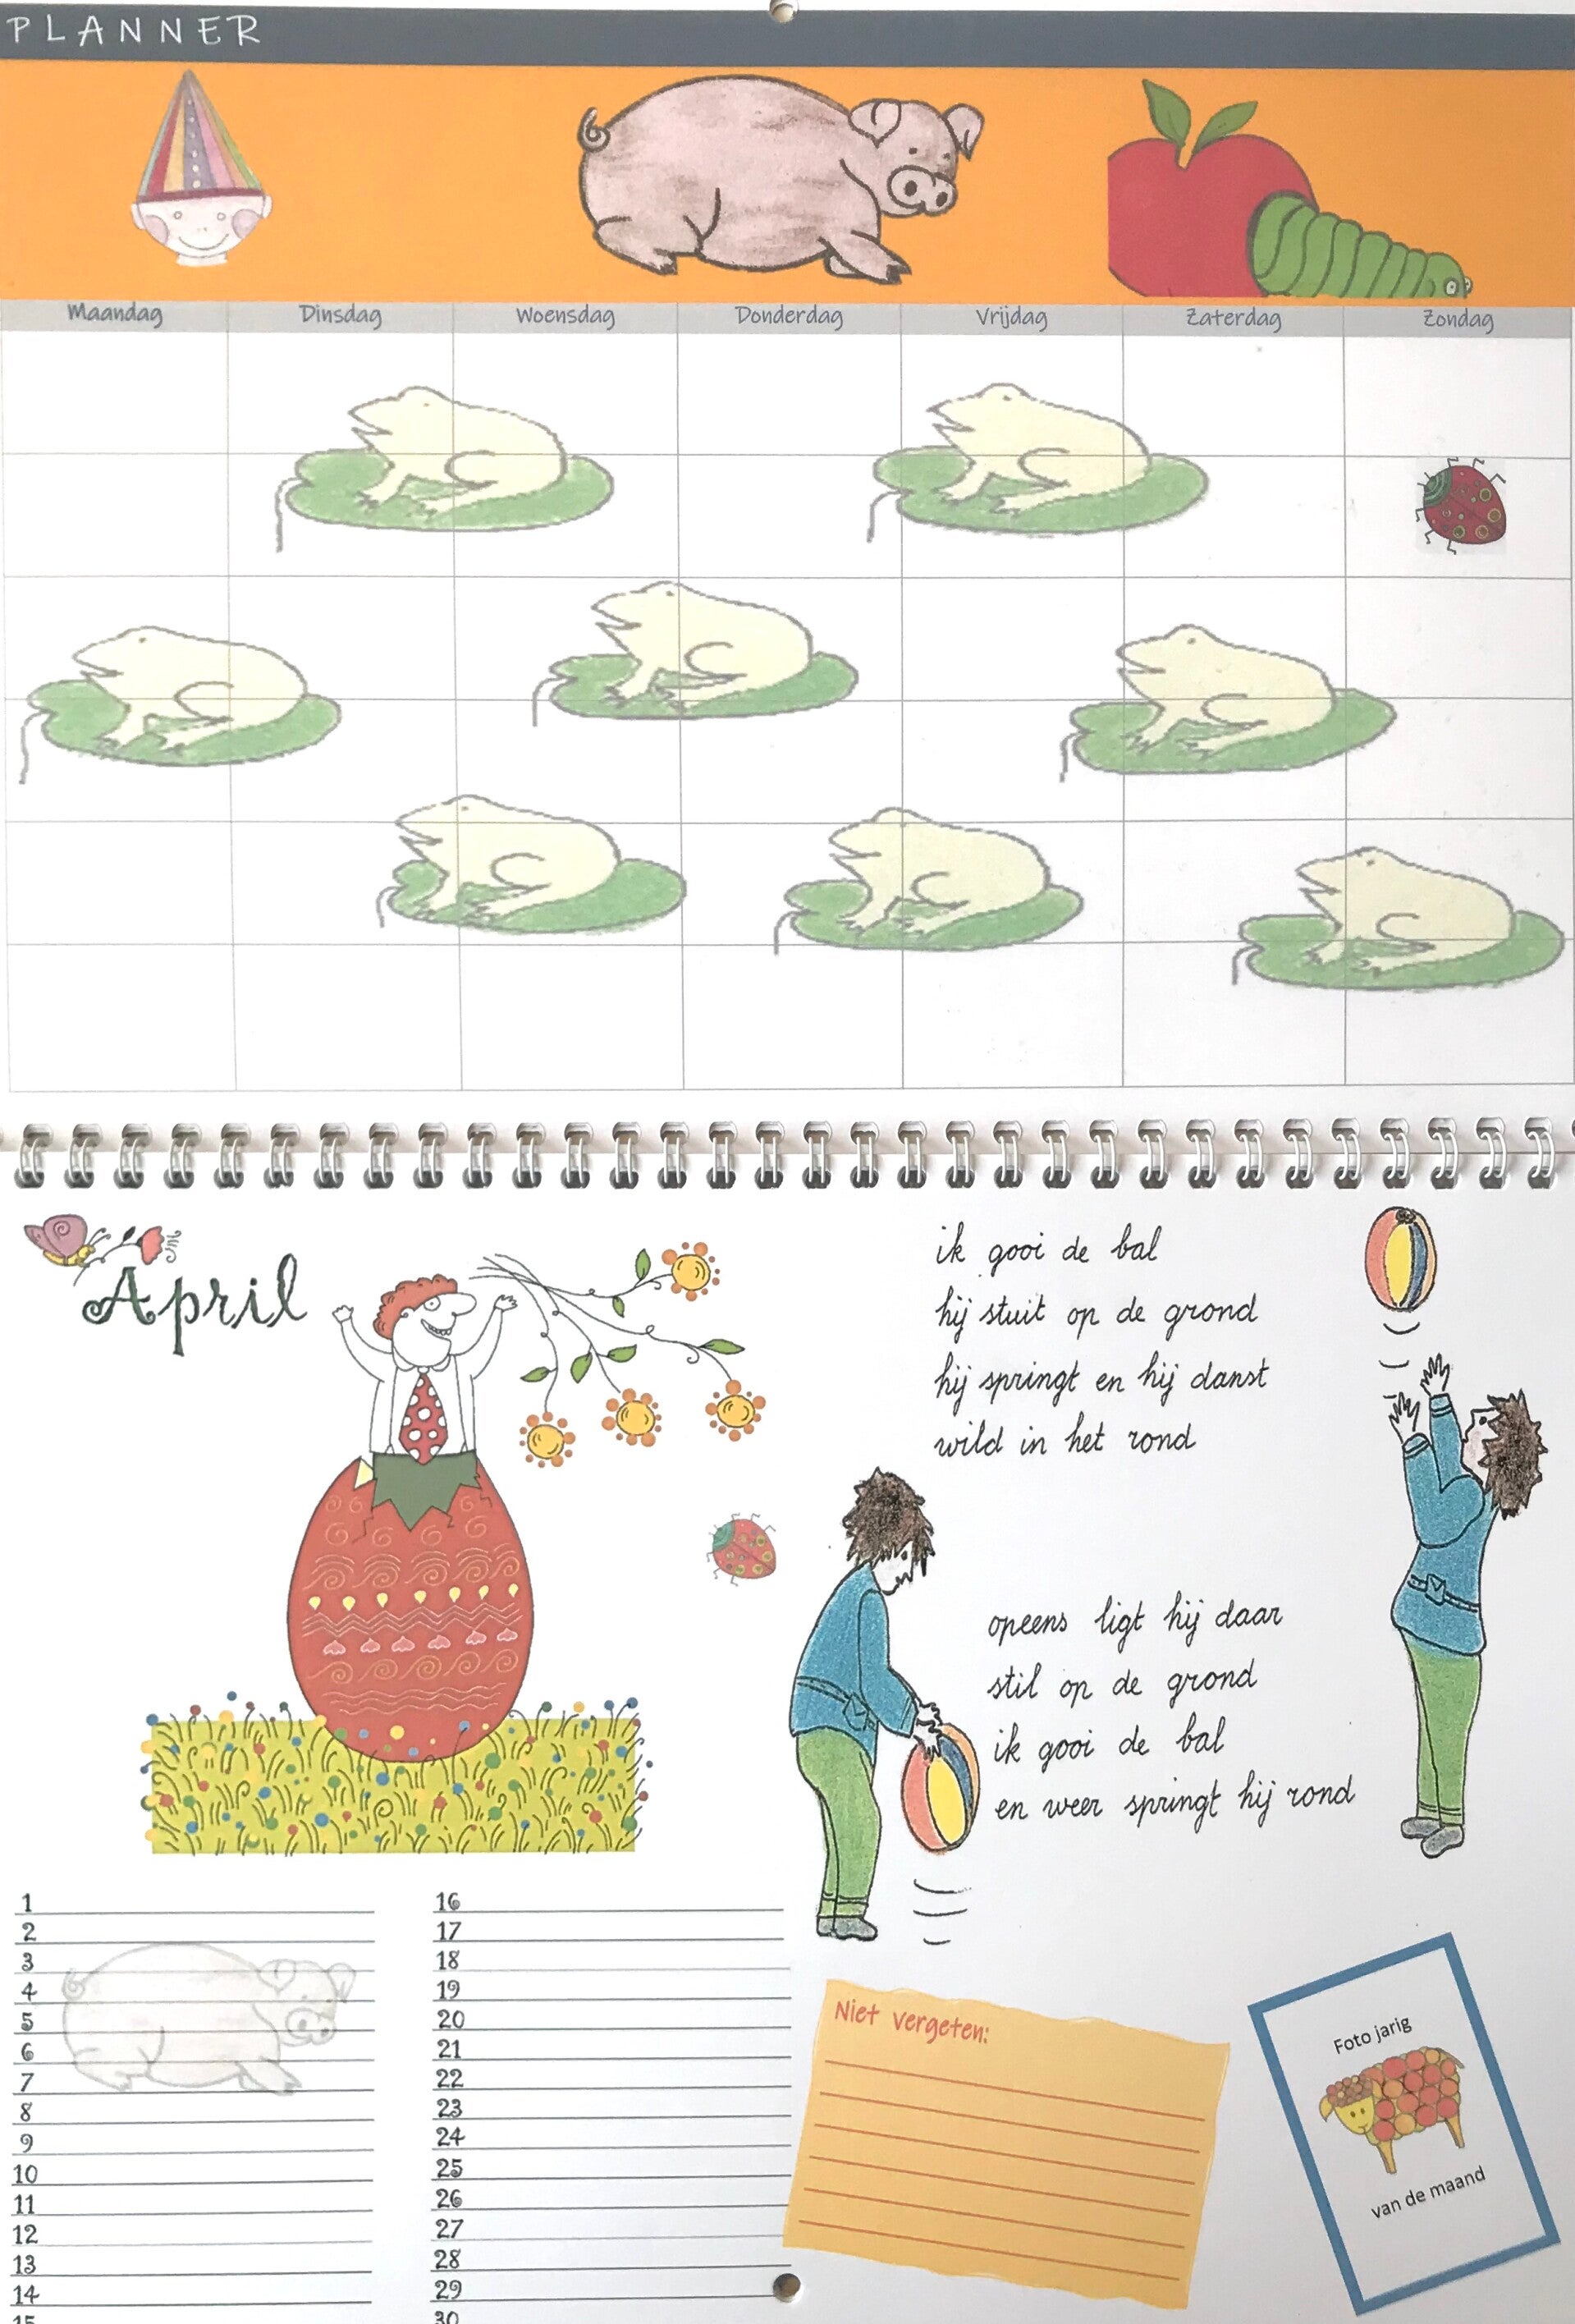 PLANNER
Maandag Dinsdag Woensdag Donderdag Vrijdag Zaterdag Zondag
April
ik gooi de bal
hij stuit op de grond
hij springt en hij danst
wild in het rond
opeens ligt hij daar
stil op de grond
ik gooi de bal
en weer springt hij rond
1
2
3
4
5
6
7
8
9
10
11
12
13
14
15
16
17
18
19
20
21
22
23
24
25
26
27
28
29
30
Niet vergeten:
Foto jarig
van de maand